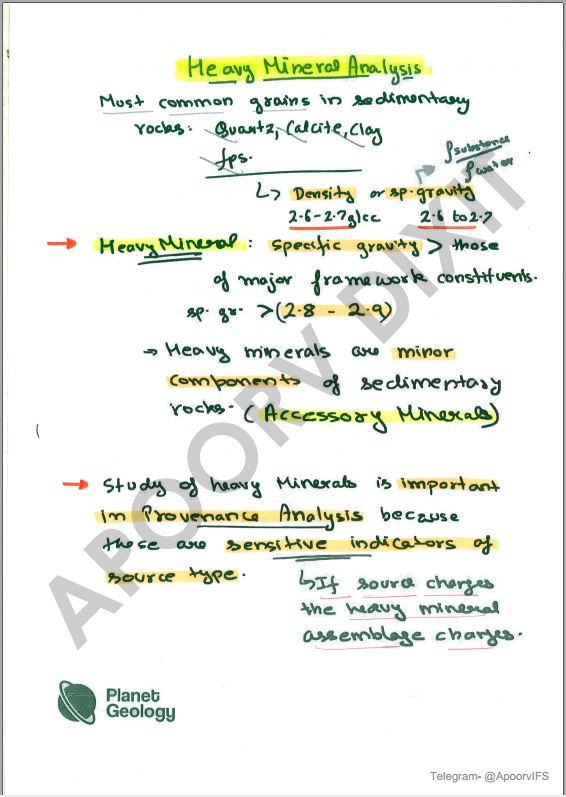 Heavy Mineral Analysis
Most common grains in sedimentary
rocks: Quartz, Calcite, Clay
fps.
ρsubstance
ρwater
↳ Density or sp. gravity
2.6-2.7 g/cc 2.6 to 2.7
→ Heavy Mineral: Specific gravity > those
of major framework constituents.
sp. gr. > (2.8 - 2.9)
→ Heavy minerals are minor
components of sedimentary
rocks. (Accessory Minerals)
→ Study of heavy Minerals is important
in Provenance Analysis because
these are sensitive indicators of
source type.
↳ If source changes
the heavy mineral
assemblage changes.
APOORV DIXIT
Planet
Geology
Telegram- @ApoorvIFS